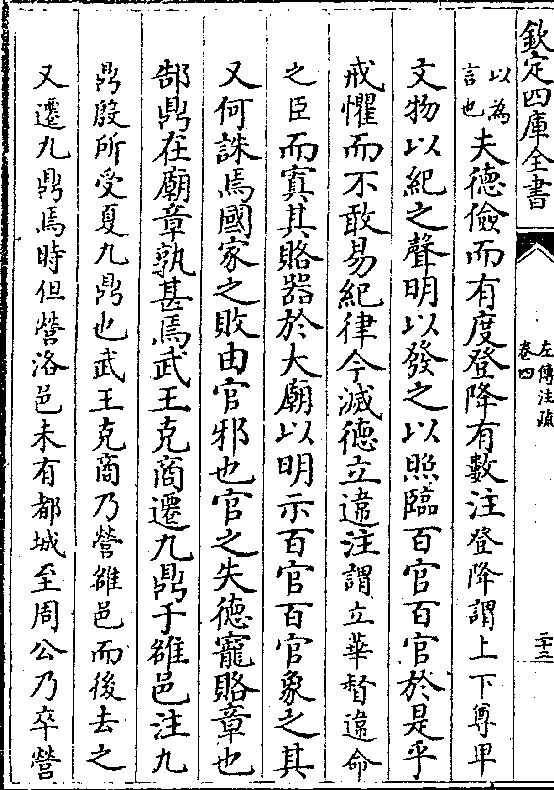 欽定四庫全書
左傳注疏
卷四
二十三
以為
言也
夫德儉而有度登降有數注登降謂上下尊卑
文物以紀之聲明以發之以照臨百官百官於是乎
戒懼而不敢易紀律今滅德立違注謂立華督違命
之臣而寘其賂器於大廟以明示百官百官象之其
又何誅焉國家之敗由官邪也官之失德寵賂章也
郜鼎在廟章孰甚焉武王克商遷九鼎于雒邑注九
鼎殷所受夏九鼎也武王克商乃營雒邑而後去之
又遷九鼎焉時但營洛邑未有都城至周公乃卒營